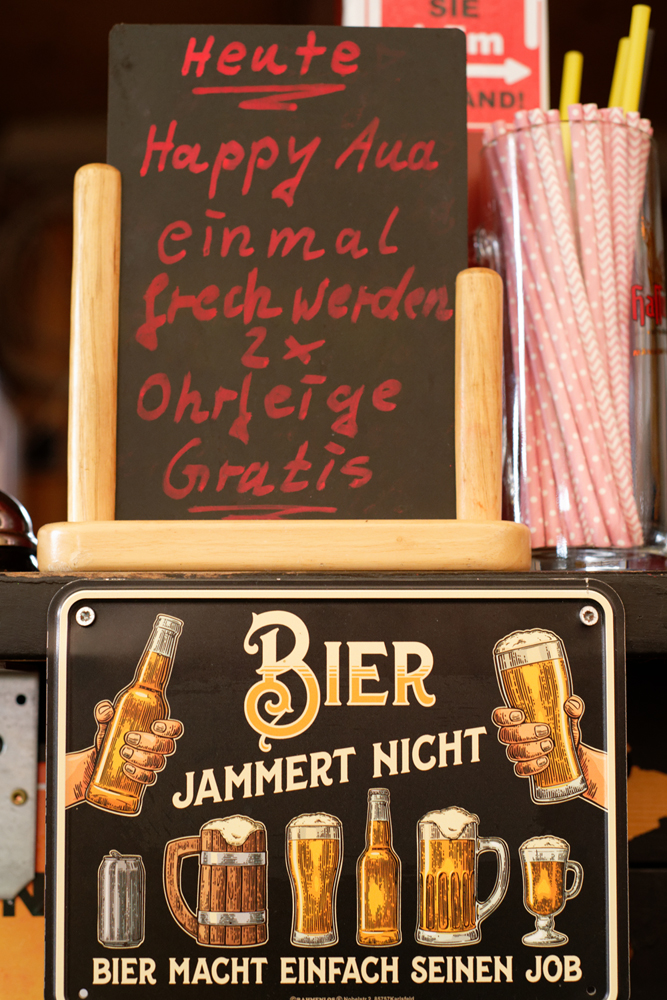 SIE
AND!
Heute
Happy Aua
einmal
frech werden
2x
Ohrfeige
Gratis
BIER
JAMMERT NICHT
BIER MACHT EINFACH SEINEN JOB